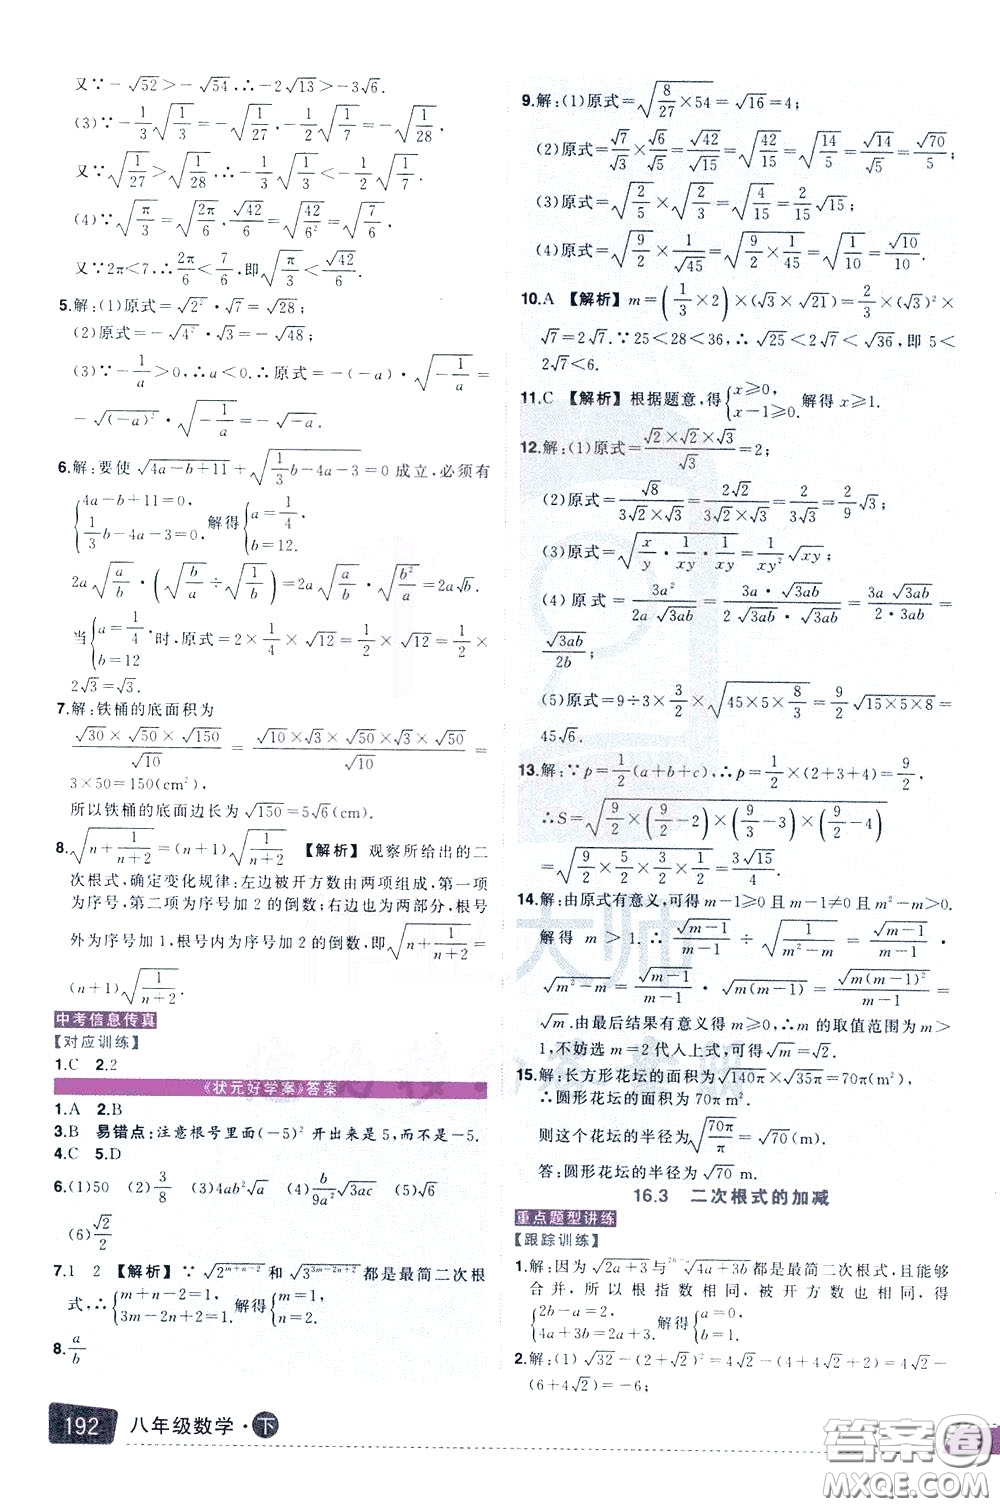 又∵-√52>-√54,∴-2√13>-3√6.
(3)∵-1/3√(1/3)=-√(1/27),-1/2√(1/7)=-√(1/28),
又∵√(1/27)>√(1/28),∴-1/3√(1/3)<-1/2√(1/7).
(4)∵√(π/3)=√(2π/6),√42/6=√(42/6²)=√(7/6),
又∵2π<7,∴2π/6<7/6,即√(π/3)<√42/6.
5.解:(1)原式=√2²·√7=√28;
(2)原式=-√4²·√3=-√48;
(3)∵-1/a>0,∴a<0.∴原式=-(-a)·√(-1/a)=
-√(-a)²·√(-1/a)=-√-a.
6.解:要使√(4a-b+11)+√(1/3b-4a-3)=0成立,必须有
{4a-b+11=0, 1/3b-4a-3=0, 解得{a=1/4, b=12.
2a√(a/b)·(√(b/a)÷√(1/b))=2a√(a/b)·√(b²/a)=2a√b.
当{a=1/4, b=12时,原式=2×1/4×√12=1/2×√12=1/2×
2√3=√3.
7.解:铁桶的底面积为
√30×√50×√150/√10=√10×√3×√50×√3×√50/√10=
3×50=150(cm²)
所以铁桶的底面边长为√150=5√6(cm).
8.√(n+1/(n+2))=(n+1)√(1/(n+2)) 【解析】观察所给出的二
次根式,确定变化规律:左边被开方数由两项组成,第一项
为序号,第二项为序号加2的倒数;右边也为两部分,根号
外为序号加1,根号内为序号加2的倒数,即√(n+1/(n+2))=
(n+1)√(1/(n+2)).
中考信息传真
【对应训练】
1.C 2.2
《状元好学案》答案
1.A 2.B
3.B 易错点:注意根号里面(-5)²开出来是5,而不是-5.
4.C 5.D
6.(1)50 (2)3/8 (3)4ab²√a (4)b/9a²√3ac (5)√6
(6)√2/2
7.1 2 【解析】∵√2^(m+n-2)和√3^(3m-2n+2)都是最简二次根
式,∴{m+n-2=1, 3m-2n+2=1, 解得{m=1, n=2.
8.a/b
192 八年级数学·下
9.解:(1)原式=√(8/27×54)=√16=4;
(2)原式=√7/√3×√6/√5=√42/√15=√(42/15)=√(14/5)=√14/√5=√70/5;
(3)原式=√(2/5)×√(2/3)=√(4/15)=2/15√15;
(4)原式=√(9/2)×1/√45=√(9/2×1/45)=√(1/10)=√10/10.
10.A 【解析】m=(1/3×2)×(√3×√21)=2/3×(√3)²×
√7=2√7.∵25<28<36,∴√25<2√7<√36,即5<
2√7<6.
11.C 【解析】根据题意,得{x≥0, x-1≥0.解得x≥1.
12.解:(1)原式=√2×√2×√3/√3=2;
(2)原式=√8/(3√2×√3)=2√2/(3√2×√3)=2/(3√3)=2/9√3;
(3)原式=√(x/y·1/xy·1/xy)=1/xy²√xy;
(4)原式=3a²/(2a√3ab)=3a·√3ab/(2·3ab)=3a√3ab/(2·3ab)=
√3ab/2b;
(5)原式=9÷3×3/2×√(45×5×8/3)=9/2√(15×5×8)=
45√6.
13.解:∵p=1/2(a+b+c),∴p=1/2×(2+3+4)=9/2.
∴S=√(9/2×(9/2-2)×(9/2-3)×(9/2-4))
=√(9/2×5/2×3/2×1/2)=3√15/4.
14.解:由原式有意义,可得m-1≥0且m-1≠0且m²-m>0.
解得m>1.∴√(m-1)/(m-1)÷√(1/(m²-m))=√(m-1)/(m-1)×
√(m²-m)=√(m-1)/(m-1)×√(m(m-1))=√(m(m-1)²)/(m-1)=
√m.由最后结果有意义得m>0,∴m的取值范围为m>
1,不妨选m=2代入上式,可得原式=√2.
15.解:长方形花坛的面积=√140π×√35π=70π,
∴圆形花坛的面积=70π.
则这个花坛的半径=√(70π/π)=√70(m).
答:圆形花坛的半径为√70 m.
16.3 二次根式的加减
重点题型讲练
【跟踪训练】
1.解:因为√(2a+3)与√(4a+3b)都是最简二次根式,且能够
合并,所以根指数相同,被开方数也相同,得
{2b-a=2, 4a+3b=2a+3. 解得{a=0, b=1.
2.解:(1)√32-(-√2)-(-4√2)+2√2=(4+1+4+2)√2=11√2;
答案圈
MXQE.COM